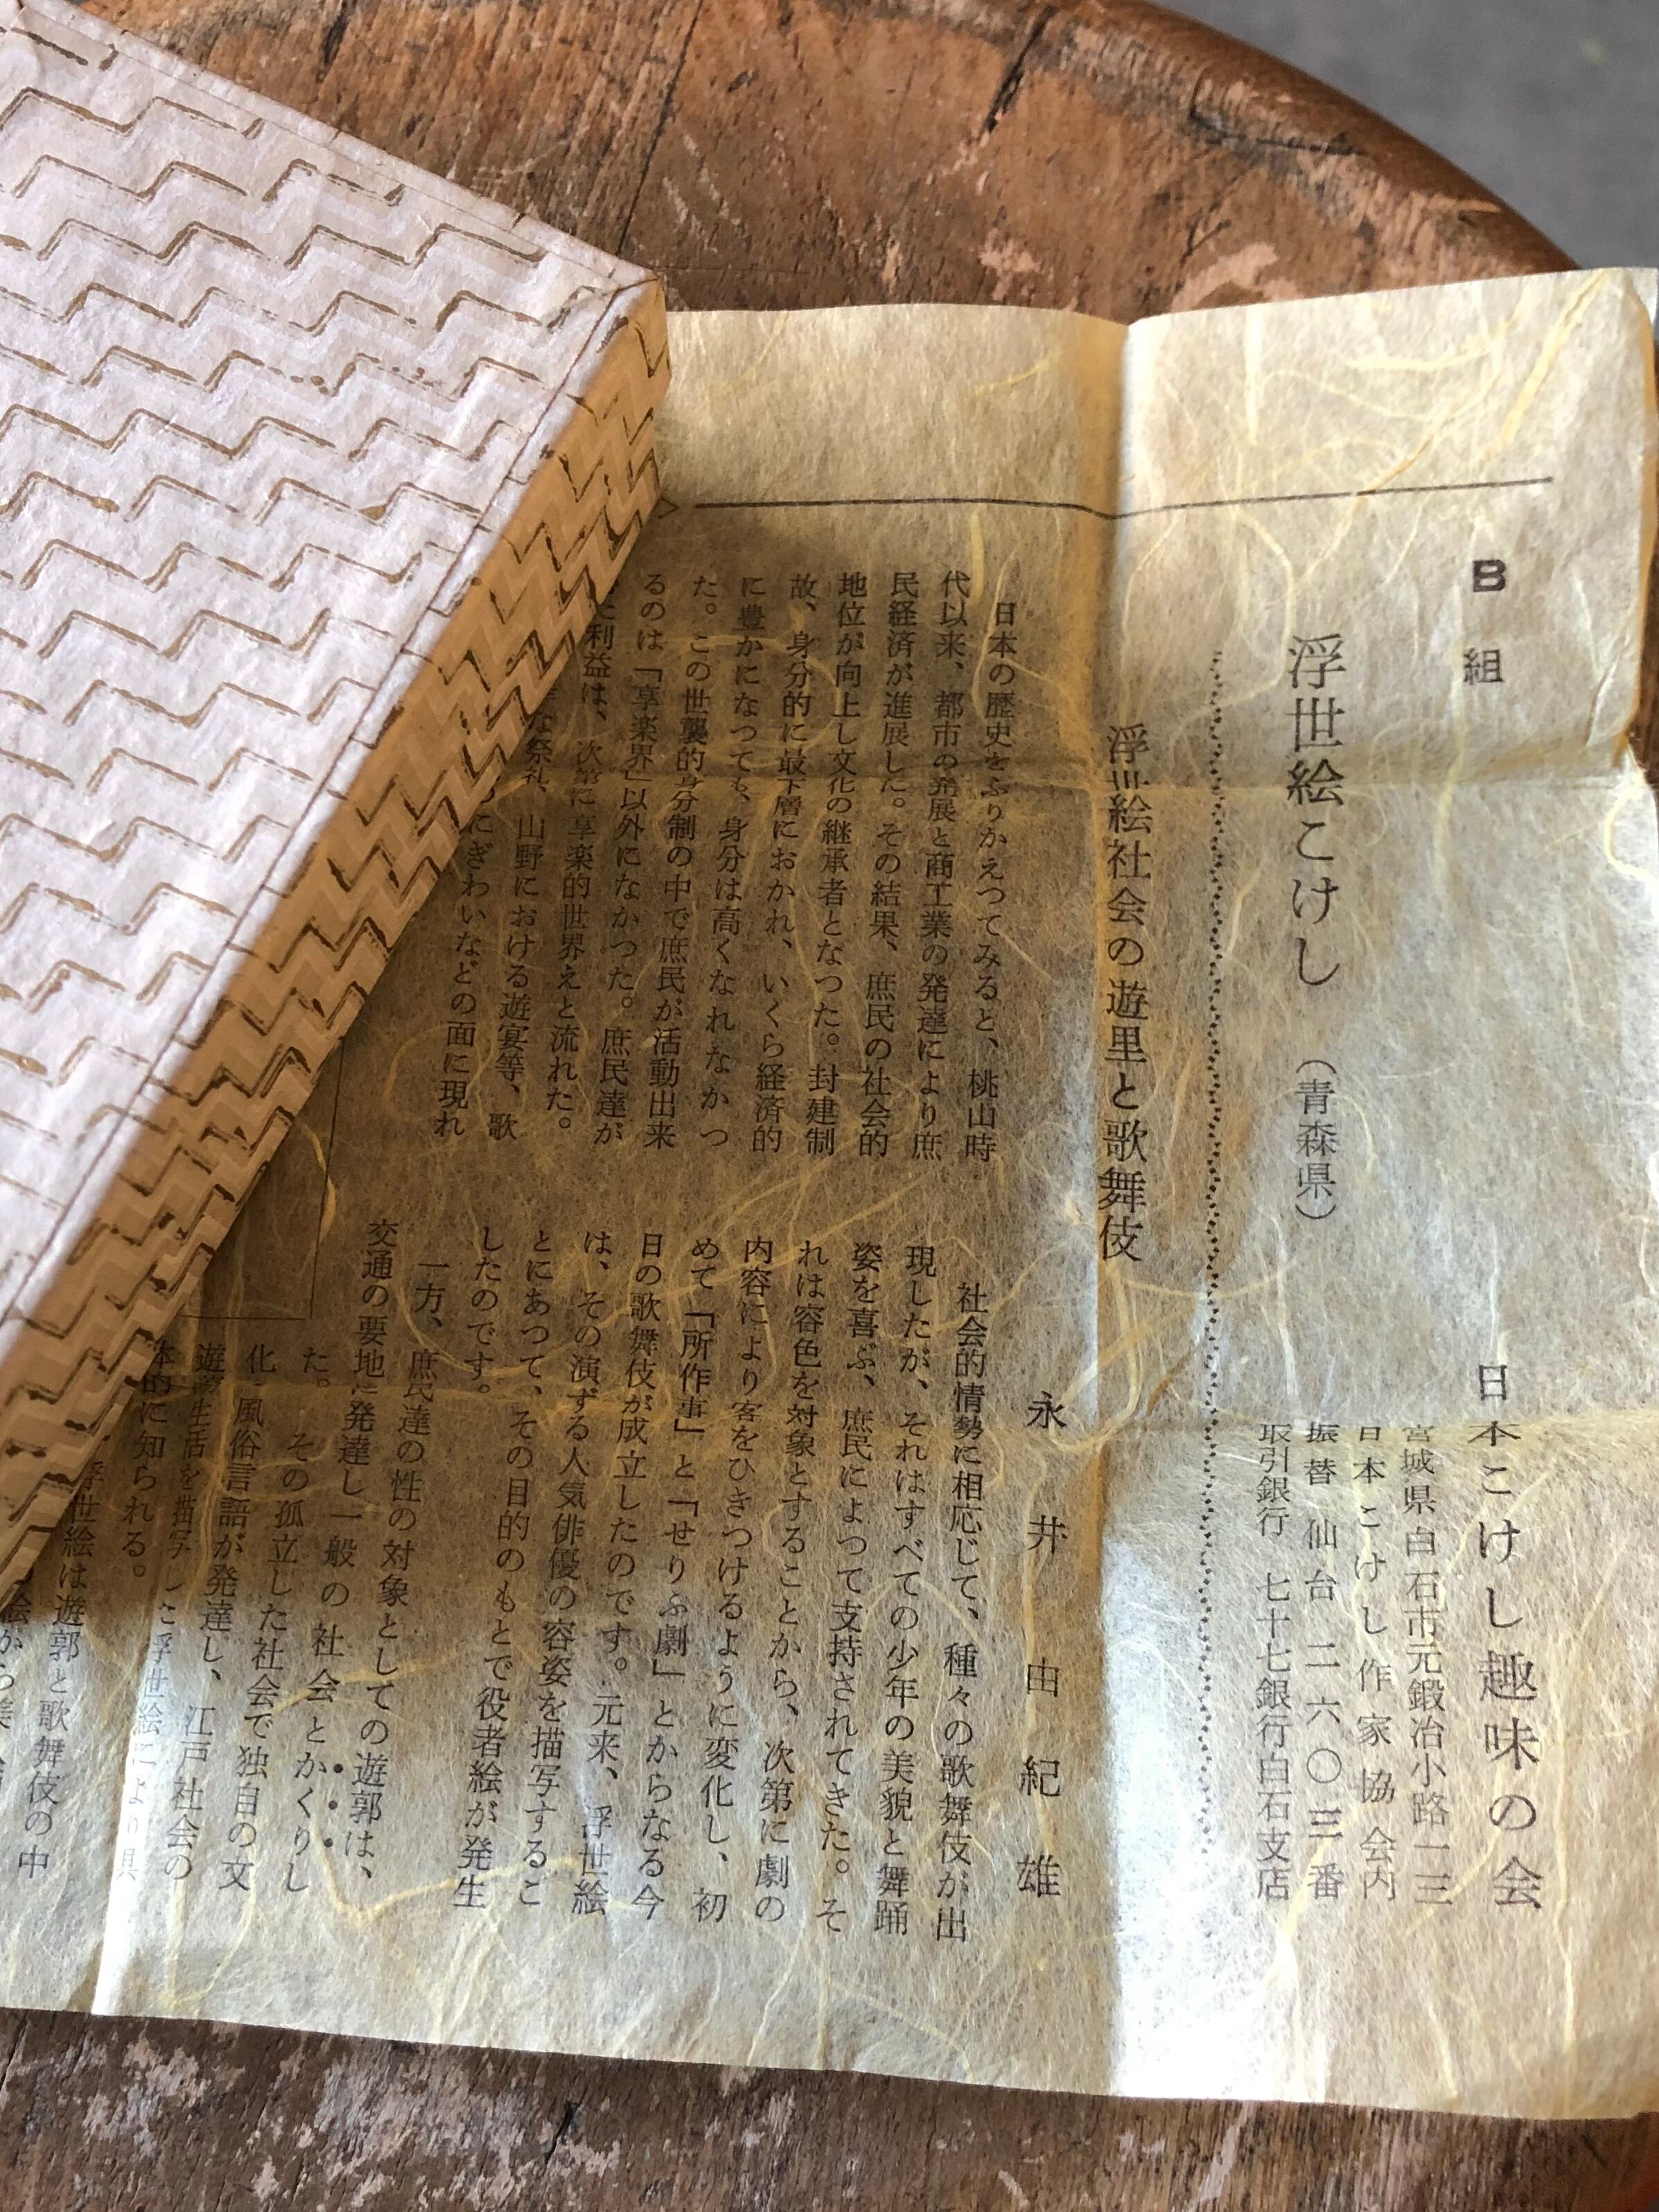 B組
浮世絵こけし （青森県）
日本こけし趣味の会
宮城県白石市元鍛冶小路一三
日本こけし作家協会内
振替 仙台 二六〇三番
取引銀行 七十七銀行白石支店
浮世絵社会の遊里と歌舞伎
永井由紀雄
日本の歴史をふりかえつてみると、桃山時
代以来、都市の発展と商工業の発達により庶
民経済が進展した。その結果、庶民の社会的
地位が向上し文化の継承者となつた。封建制
故、身分的に最下層におかれ、いくら経済的
に豊かになつても、身分は高くなれなかつ
た。この世襲的身分制の中で庶民が活動出来
るのは「享楽界」以外になかつた。庶民達が
た利益は、次第に享楽的世界えと流れた。
な祭礼、山野における遊宴等、歌
のにぎわいなどの面に現れ
社会的情勢に相応じて、種々の歌舞伎が出
現したが、それはすべての少年の美貌と舞踊
姿を喜ぶ、庶民によつて支持されてきた。そ
れは容色を対象とすることから、次第に劇の
内容により客をひきつけるように変化し、初
めて「所作事」と「せりふ劇」とからなる今
日の歌舞伎が成立したのです。元来、浮世絵
は、その演ずる人気俳優の容姿を描写するこ
とにあつて、その目的のもとで役者絵が発生
したのです。
一方、庶民達の性の対象としての遊郭は、
交通の要地に発達し一般の社会とかくりし
た。その孤立した社会で独自の文
化、風俗言語が発達し、江戸社会の
遊蕩生活を描写した浮世絵により具
体的に知られる。
浮世絵は遊郭と歌舞伎の中
絵から美